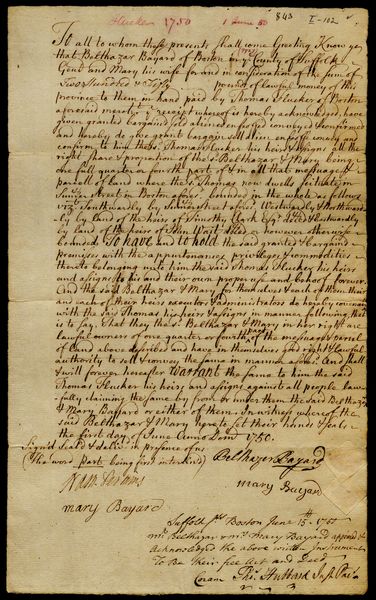 Flucker 1750 1 June 50 843 I-102
To all to whom these presents Shall come Greeting Know ye
that Belthazar Bayard of Boston in ye County of Suffolk
Gent and Mary his wife for and in consideration of the sum of
Two Hundred & Fifty pounds of lawfull money of this
province to them in hand paid by Thomas Flucker of Boston
aforesaid merct ye receipt whereof is hereby acknowledged have
given granted bargained sold aliened enfeoffed conveyed & confirmed
and hereby do give grant bargain sell alien enfeoff convey and
confirm to him the sd Thomas Flucker his heirs & assigns all the
right share & proportion of the sd Belthazar & Mary being
one full quarter or fourth part of & in all that messuage &
parcell of land where the sd Thomas now dwells scituate in
Street in Boston aforesd bounded in the whole as follows
vizt Southwardly by street aforesd Westwardly & Northward-
ly by land of the heirs of Timothy Clark Esqr decd & Eastwardly
by land of the heirs of John Wait decd or however otherwise
bounded To have and to hold the said granted & bargaind
premises with the appurtenances priviledges & commodities
thereto belonging unto him the said Thomas Flucker his heirs
and assigns to his and their own proper use and behoof forever
And the said Belthazar & Mary for themselves & each of them their
and each of their heirs executors & administrators do hereby covenant
with the said Thomas his heirs & assigns in manner following that
is to say That they the sd Belthazar & Mary in her right are
lawful owners of one quarter or fourth part of the messuage & parcel
of Land above described and have in themselves good right & lawful
authority to sell & convey the same in manner aforesd And shall
& will forever hereafter Warrant the same to him the said
Thomas Flucker his heirs and assigns against all people law-
fully claiming the same by from or under them the said Belthazar
& Mary Bayard or either of them In witness whereof the
said Belthazar & Mary have to set their hands & seals
the first day of June Anno Dom 1750.
Signed Seald & deliv'd in presence of us
(The word Part being first interlined) Belthazar Bayard
Mary Bayard
Mary Bayard
Suffolk ss Boston June 15th
mr Belthazar & mrs Mary Bayard appeared &
Acknowledged the above written Instrument
To Be their free Act and Deed
Coram Thos Hubbard Just Pacis